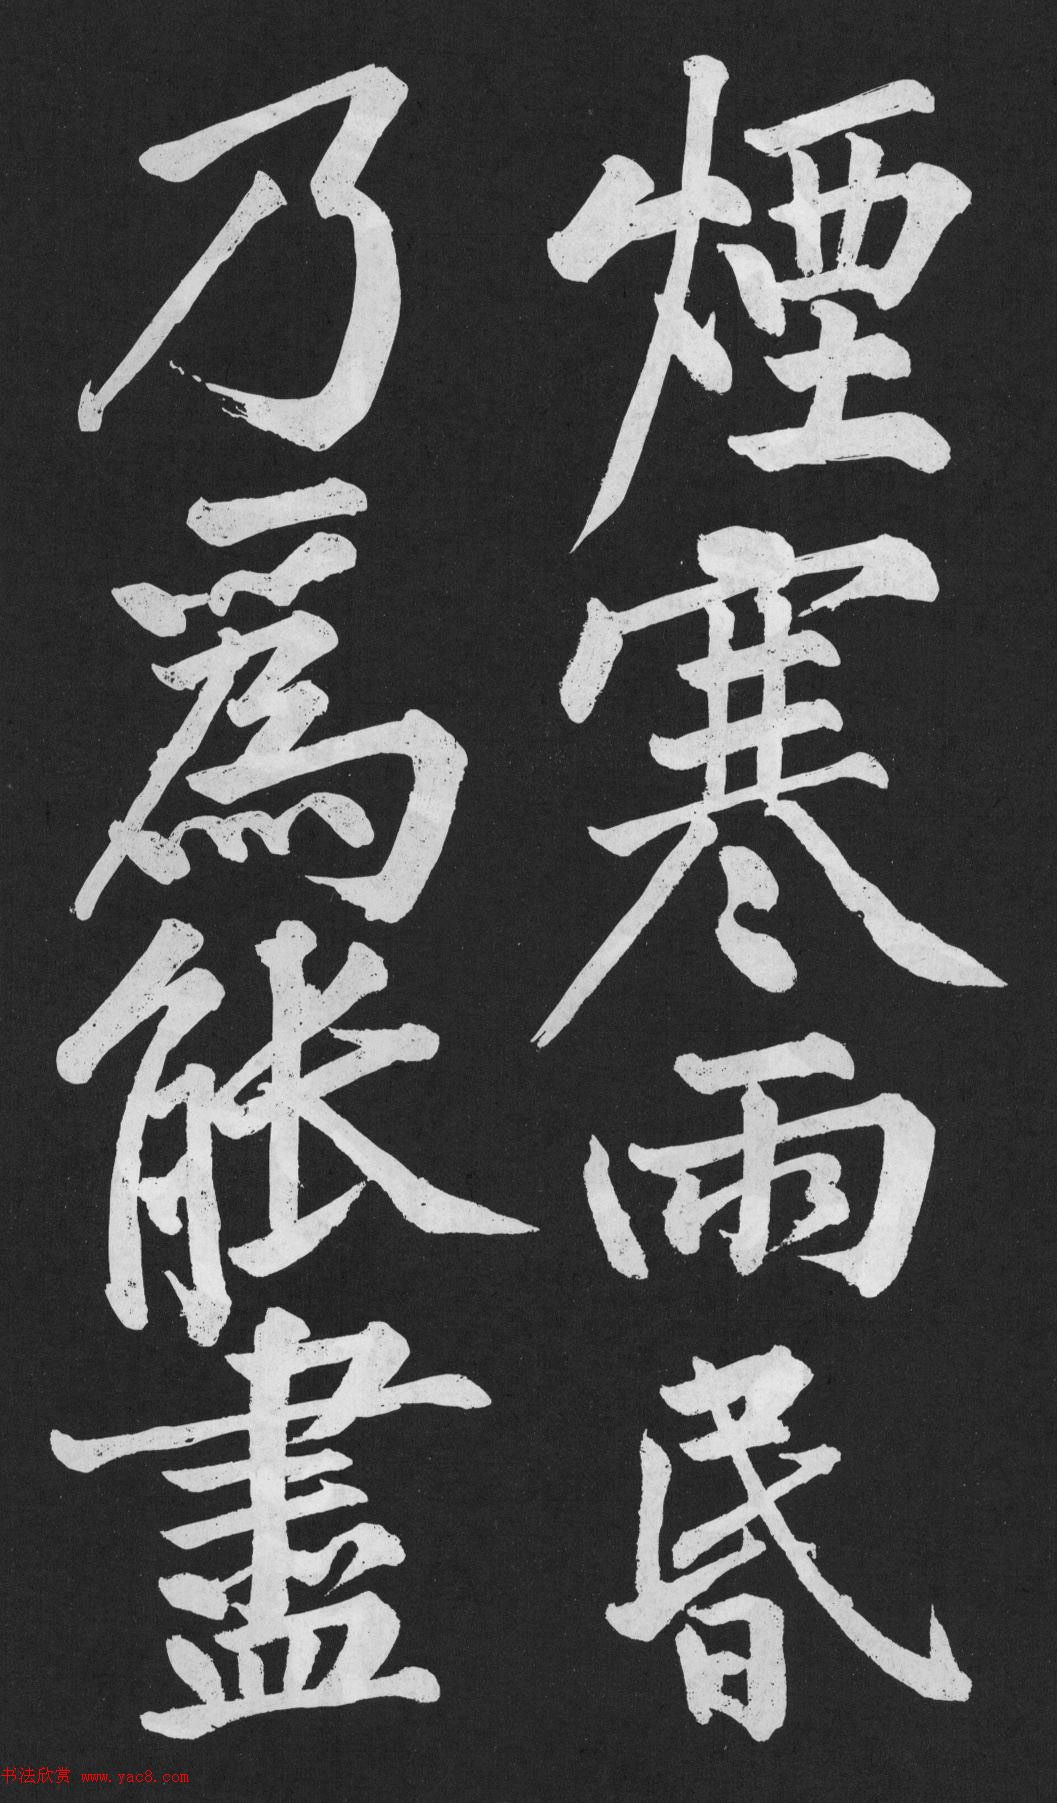 煙寒雨昬
乃爲能盡
书法欣赏 www.yac8.com